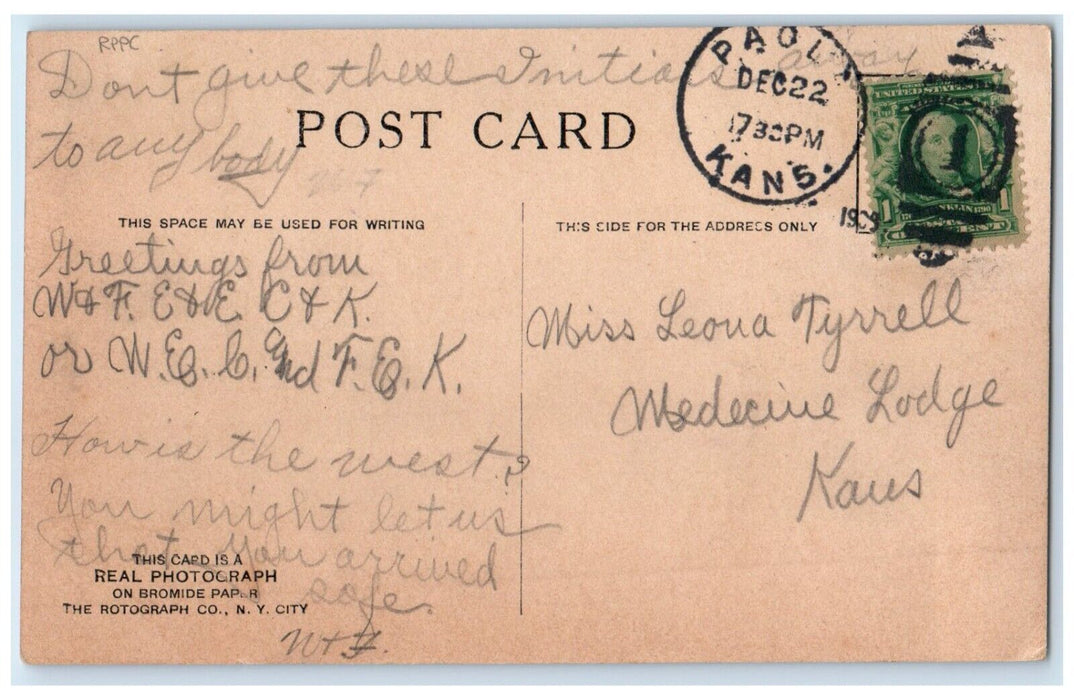 RPPC
Dont give these Initials away
to any body
POST CARD
PAOLA
DEC 22
730 PM
KANS.
1909
THIS SPACE MAY BE USED FOR WRITING
THIS SIDE FOR THE ADDRESS ONLY
Greetings from
W & F. E & E. C & K.
or W. E. C. and F. E. K.
How is the west?
You might let us
that you arrived
safe.
W + F.
Miss Leona Tyrrell
Medecine Lodge
Kans
THIS CARD IS A
REAL PHOTOGRAPH
ON BROMIDE PAPER
THE ROTOGRAPH CO., N. Y. CITY